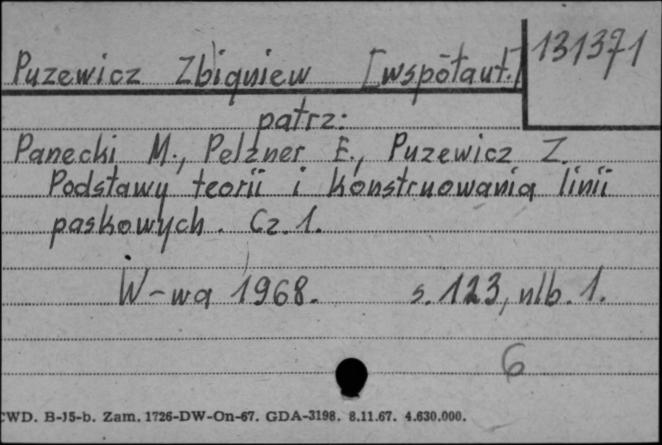 Puzewicz Zbigniew [współaut.] 131371
patrz:
Panecki M., Pelzner E., Puzewicz Z.
Podstawy teorii i konstruowania linii
paskowych. Cz. 1.
W-wa 1968. s. 123, nlb. 1.
6
CWD. B-15-b. Zam. 1726-DW-On-67. GDA-3198. 8.11.67. 4.630.000.